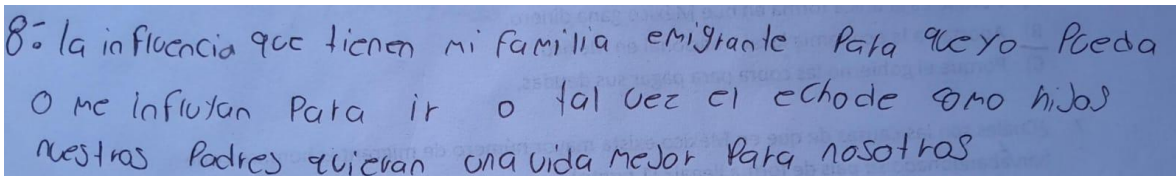 8º la influencia que tienen mi familia emigrante Para que yo Pueda
O me influyan Para ir o tal vez el echo de como hijos
nuestros Padres quieran una vida mejor Para nosotros